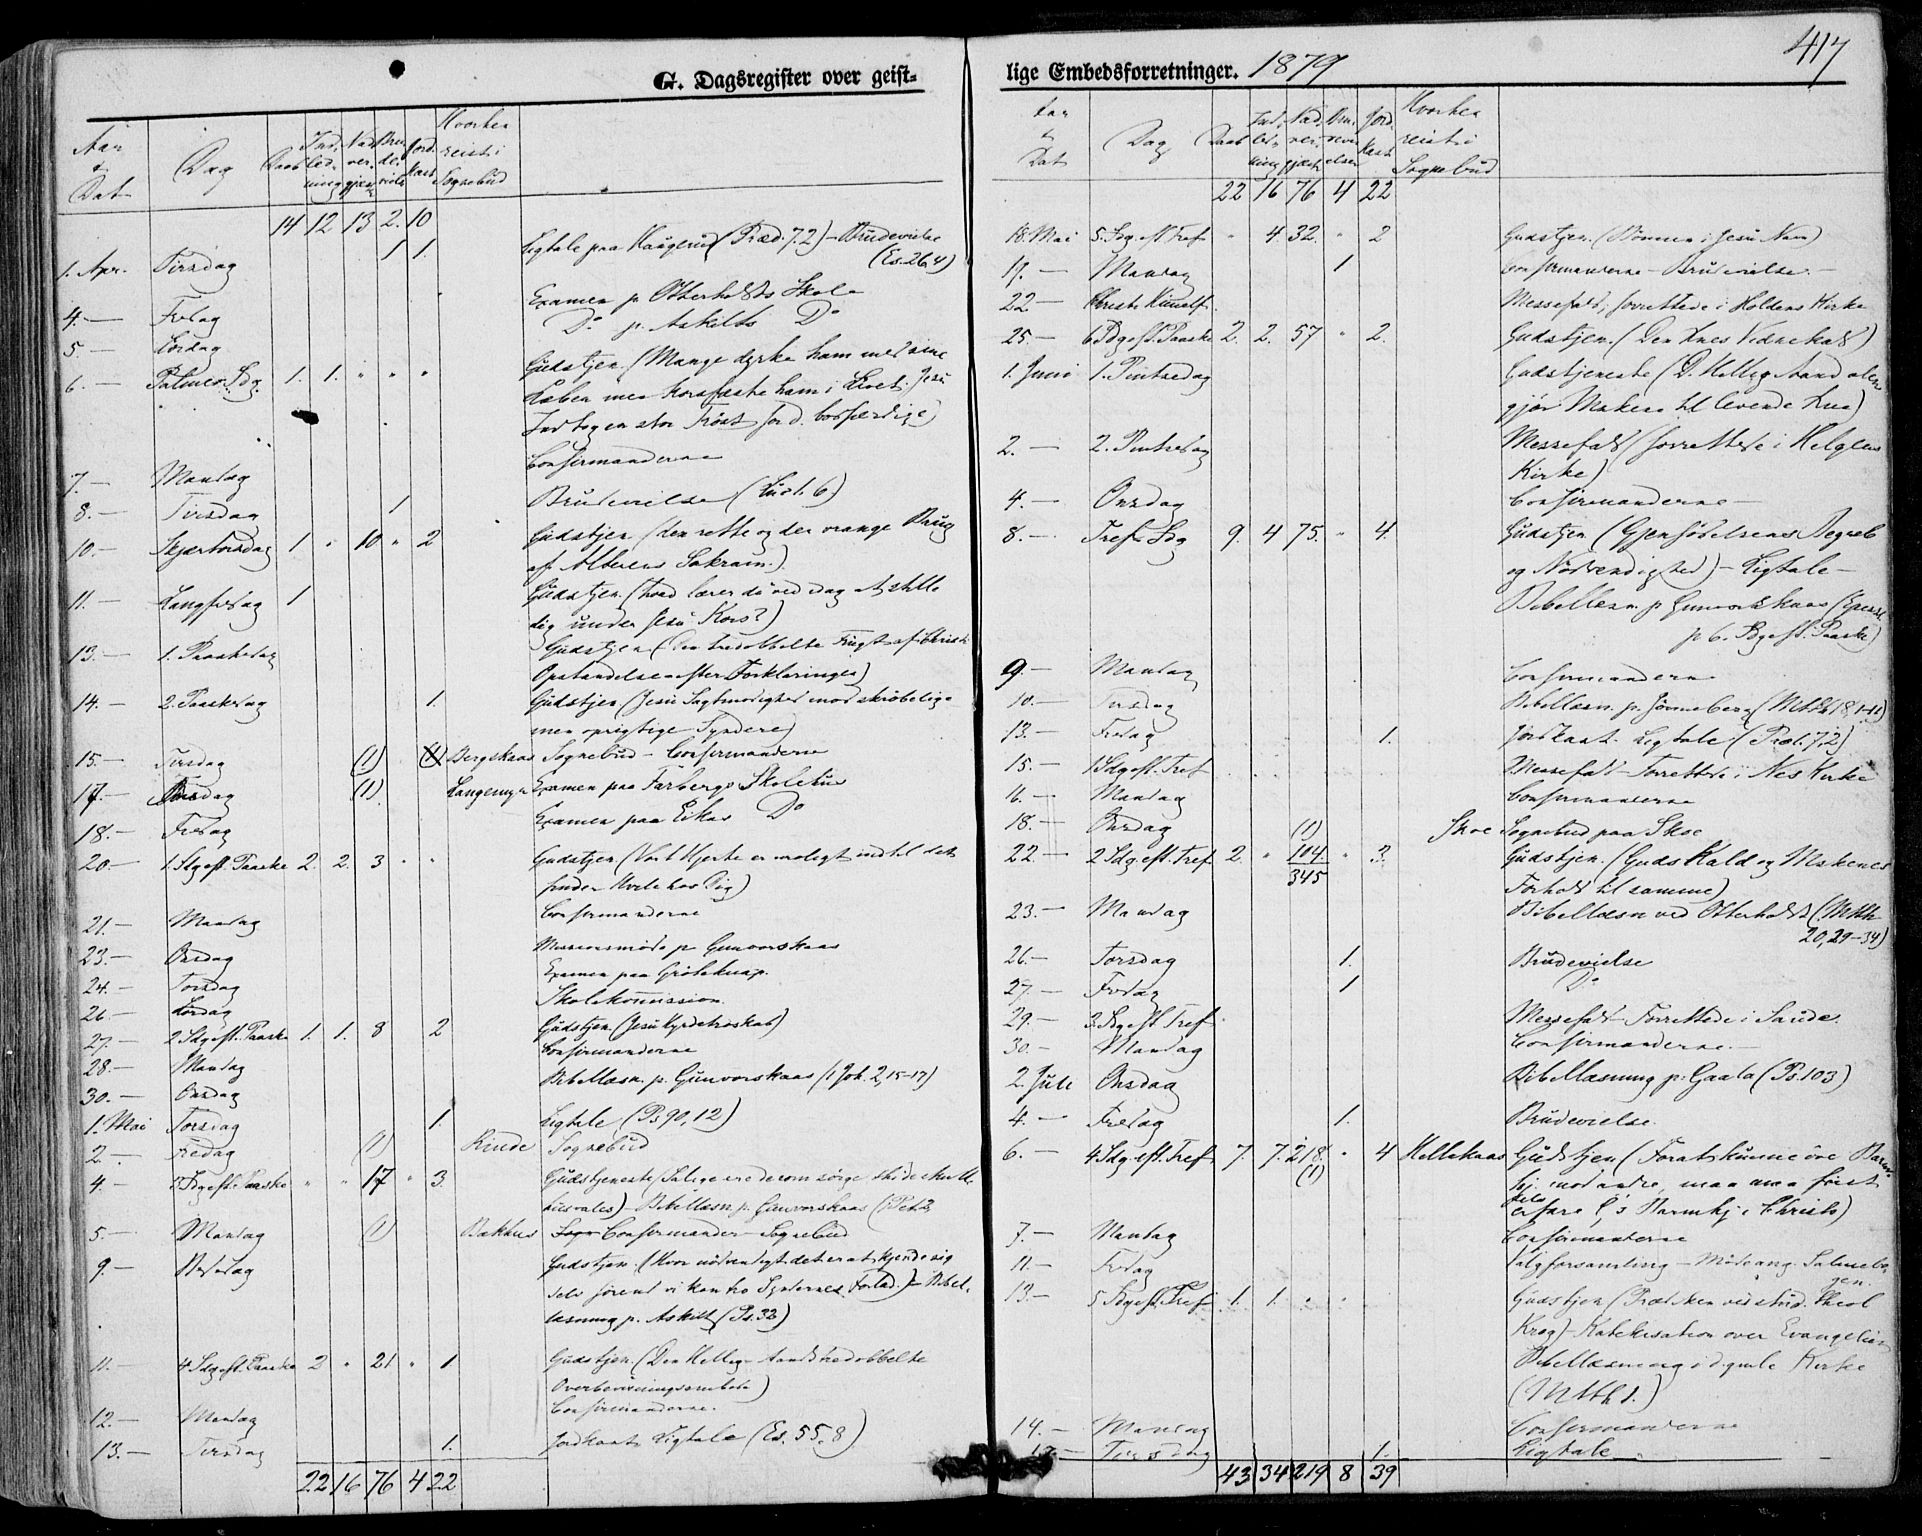 G. Dagsregister over geist-
Aar & Dat Dag Daab Ind led ning Nad ver gjæst Bru de viels Jord kast Hvorhen reist i Sognebud
14 12 13 2. 10
1. Apr. Tirsdag 1 1. Ligtale paa Haugerud (Præd. 7.2) - Brudevielse
(Es. 26,4)
4. — Fredag Examen p. Otterholts Skole
5 — Lørdag Do p. Askilts Do
6. — Palmes. Sdg. 1. 1. " " " Gudstjen. (Mange dyrke ham med sine
Læber men Korsfæste ham i Livet. Jesu
Indtog en stor Trøst for d. bodfærdige)
7. — Mandag Confirmanderne
8. — Tirsdag 1 Brudevielse (Luc. 1. 6)
10. — Skjærtorsdag 1 " 10 " 2 Gudstjen (den rette og der vrange Brug
af Alterens Sakram.)
11. — Langfredag 1 Gudstjen. (hvad lærer du ved dag at stille
dig under Jesu Kors?)
13. — 1. Paaskedag Gudstjen (Den tredobbelte Frugt af Christi
Opstandelse efter Forklaringen)
14. — 2. Paaskedag 1. Gudstjen (Jesu Sagtmodighed mod skrøbelige
men oprigtige Syndere)
15. — Tirsdag (1) (1) Bergskaas Sognebud - Confirmanderne
17. — dag (1) Langemyr Examen paa Farbergs Skolehus
18. — Fredag Examen paa Eikas Do
20. — 1 Sdg eft. Paaske 2. 2. 3 " " Gudstjen. (Vort Hjerte er uroligt indtil det
finder Hvile hos Dig)
21. — Mandag Confirmanderne
23. — Onsdag Missionsmøde p. Gunvorskaas
24. — Torsdag Examen paa
26. — Lørdag Skolekommission.
27. — 2 Sdg eft. Paaske 1. 1. 8 2 Gudstjen. (Jesu Hyrdetroskab)
28. — Mandag Confirmanderne
30. — Onsdag Bibellæsn. p. Gunvorskaas (1 Joh. 2,15-17)
1. Mai Torsdag 1. Ligtale (Ps 90,12)
2. — Fredag (1) Rinde Sognebud
4. — 3 Sdg eft. Paaske " " 17 " 3. Gudstjeneste (Salige ere de som sørge thi de skulle
husvales) - Bibellæsn. p. Gunvorskaas (1 Pet 2,
5. — Mandag (1) Bakhus Confirmander - Sognebud
9. — Bededag Gudstjen. (Hvor nødvendigt det er at kjende sig
selv førend vi kan tro Syndernes Forlad.) - Bibel-
læsning p. Askilt (Ps. 32)
11. — 4 Sdg eft. Paaske 2 " 21 " 1 Gudstjen. (Den Hellig-Aands tredobbelte
Overbevisningsembede)
12. — Mandag Confirmanderne.
13. — Tirsdag 1. Jordkast. Ligtale (Es. 55,8)
22 16 76 4 22
lige Embedsforretninger. 1879
417
Aar & Dat Dag Daab Ind led ning Nad ver gjæst Bru devi elser Jord kast Hvorhen reist i Sognebud
22 16 76 4 22
18. Mai 5. Sdg. eft. Paaske " 4 32. " 2 Gudstjen. (Bønnen i Jesu Navn)
19. — Mandag 1 Confirmanderne - Brudevielse. -
22 — Christi Himmelf. Messefald, forrettede i Holdens Kirke
25. — 6 Sdg eft. Paaske 2. 2. 57 " 2. Gudstjen. ( Vidneskab)
1. Juni 1. Pintsedag Gudstjeneste (D. Hellig Aand alene
gjør Msknene til levende )
2. — 2. Pintsedag Messefald (forrettede i Helgens
Kirke)
4. — Onsdag Confirmanderne -
8. — Tref. Sdg 9. 4 75. " 4. Gudstjen. (Gjenfødelsens Begreb
og Nødvendighed) - Ligtale -
Bibellæsn. p. Gunvorskaas (
p. 6. Sdg eft. Paaske)
9. — Mandag Confirmanderne
10. — Tirsdag Bibellæsn. p. Jønneberg (Mtth 18,1-11)
13. — Fredag 1. Jordkast. Ligtale (Præd. 7,2)
15. — 1 Sdg eft. Tref. Messefald Forrettede i Nes Kirke
16. — Mandag Confirmanderne
18. — Onsdag (1) Skoe Sognebud paa Skoe
22. — 2 Sdg. eft. Tref 2. " 104. " 3. Gudstjen. (Guds Kald og Msknenes
345 Forhold til samme)
23. — Mandag Bibellæsn ved Otterholt (Mtth
20,29-34)
26. — Torsdag 1. Brudevielse
27. — Fredag 1 Do
29. — 3. Sdg eft. Tref. Messefald - Forrettede i Saude.
30. — Mandag Confirmanderne. -
2. Juli Onsdag Bibellæsning p. Gaala (Ps. 103)
4. — Fredag 1. Brudevielse.
6. — 4 Sdg. eft. Tref. 7. 7. 218. " 4 Hellekaas Gudstjen (For at kunne øve Barm-
(1) hj. mod andre, maa man først
selv erfare G's Barmhj. i Christo)
7. — Mandag Confirmanderne
11. — Fredag Valgforsamling - Møde ang. Salmebo-
gen.
13. — 5 Sdg eft. Tref. 1. 1. " " Gudstjen (Prædiken ved stud. theol
Krog) - Katekisation over Evangeliet
Bibellæsning i d. gamle Kirke
(Mtth 1.)
14. — Mandag Confirmanderne
— Tirsdag 1. Ligtale
43 34 219 8 39